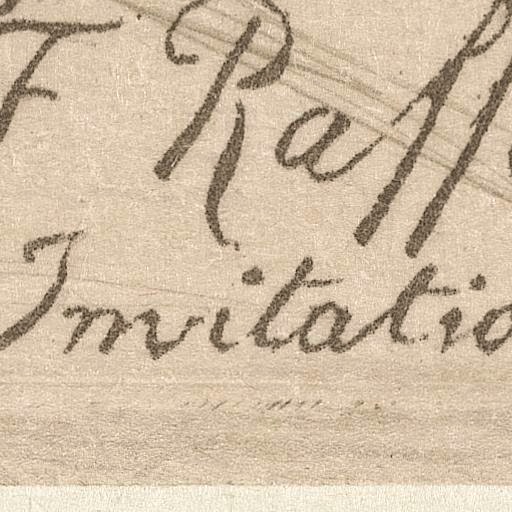 F Raff
Invitatio